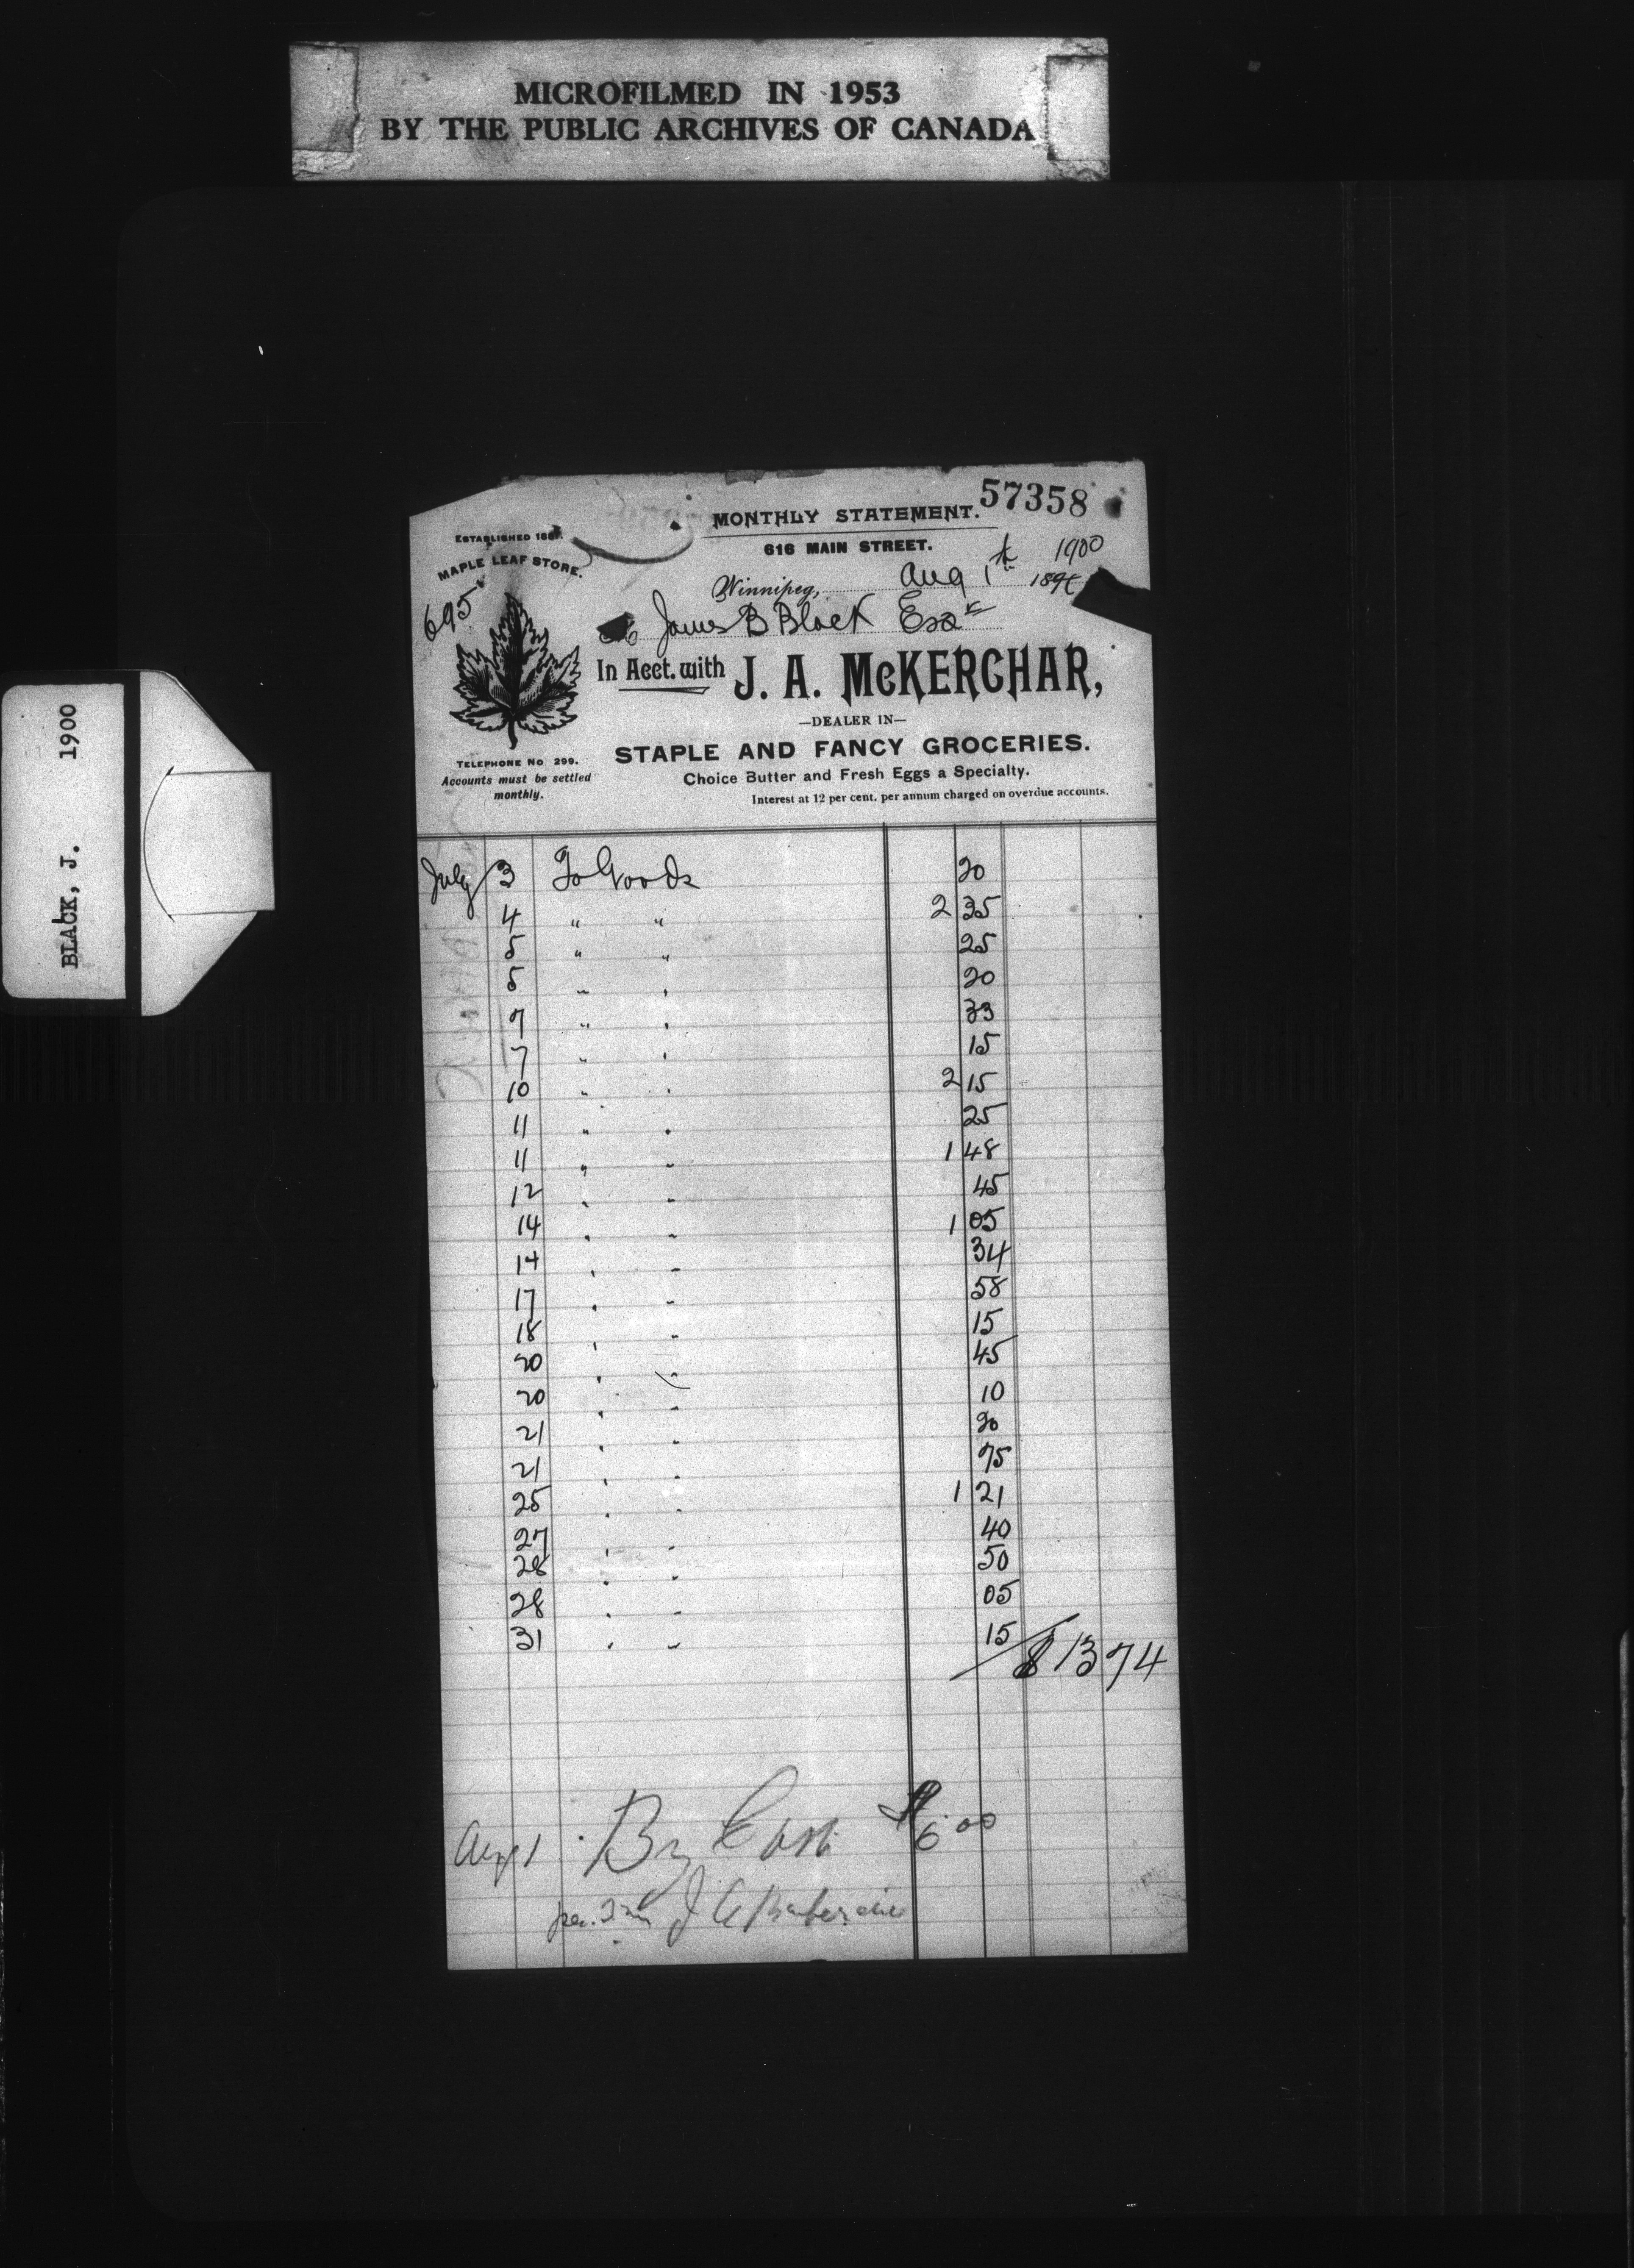 MICROFILMED IN 1953
BY THE PUBLIC ARCHIVES OF CANADA
BLACK, J. 1900
57358
MONTHLY STATEMENT.
ESTABLISHED 188
616 MAIN STREET.
MAPLE LEAF STORE.
1900
Winnipeg, Aug 1st 189
695
James B Black Esqr
In Acct. with J. A. McKERCHAR,
—DEALER IN—
STAPLE AND FANCY GROCERIES.
TELEPHONE No 299.
Choice Butter and Fresh Eggs a Specialty.
Accounts must be settled
monthly.
Interest at 12 per cent. per annum charged on overdue accounts.
July 3 To Goods 20
4 " " 2 35
5 " " 25
5 " " 20
7 " " 33
7 " " 15
10 " " 2 15
11 " " 25
11 " " 1 48
12 " " 45
14 " " 1 05
14 " " 34
17 " " 58
18 " " 15
20 " " 45
20 " " 10
21 " " 20
21 " " 75
25 " " 1 21
27 " " 40
28 " " 50
28 " " 05
31 " " 15
$13 74
Aug 1 By Cash $6.00
J